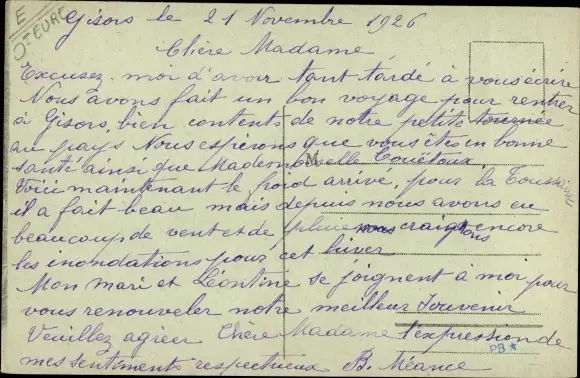 E
Jt EURE
Gisors le 21 Novembre 1926
Chère Madame
Excusez-moi d'avoir tant tardé à vous écrire
Nous avons fait un bon voyage pour rentrer
à Gisors, bien contents de notre petite tournée
au pays Nous espérons que vous êtes en bonne
santé ainsi que Mademoiselle Couëtoux.
Voici maintenant le froid arrivé, pour la Toussaint
il a fait beau mais depuis nous avons eu
beaucoup de vent et de pluie nous craignons encore
les inondations pour cet hiver
Mon mari et Léontine se joignent à moi pour
vous renouveler notre meilleur Souvenir
Veuillez agréer Chère Madame l'expression de
mes sentiments respectueux B. Méance
PB